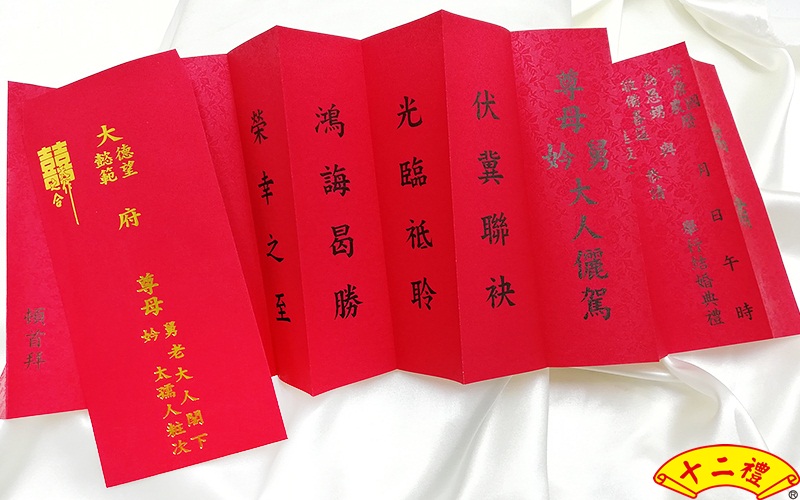 大德望懿範府
尊母舅妗老大人閣下太孺人粧次
月 日 午 時
舉行結婚典禮
尊母舅妗大人儷駕
伏冀聯袂
光臨祗聆
鴻誨曷勝
榮幸之至
頓首拜
十二禮®